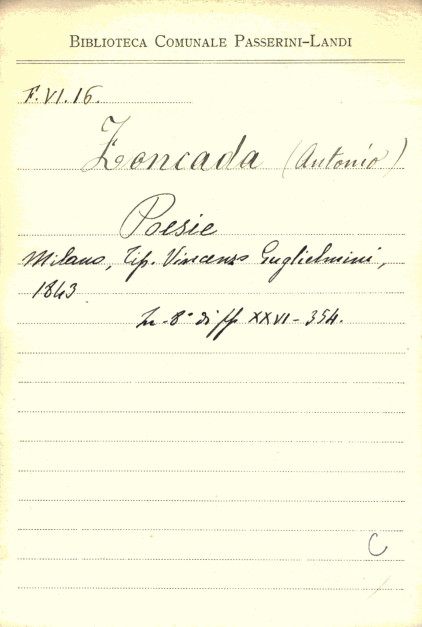 BIBLIOTECA COMUNALE PASSERINI-LANDI
F.VI.16.
Zoncada (Antonio)
Poesie
Milano, Tip. Vincenzo Guglielmini,
1843
In-8° di pp. XXVI-354.
C